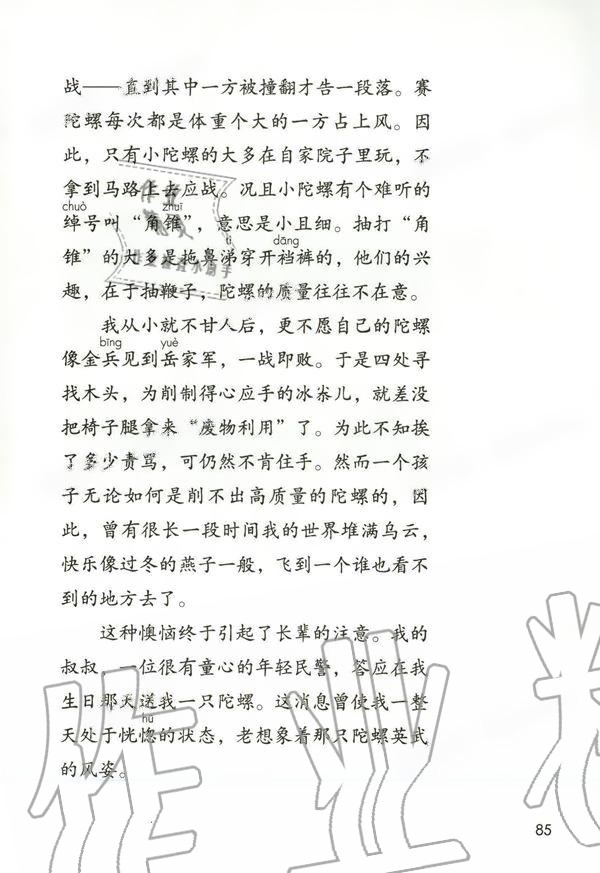 战——直到其中一方被撞翻才告一段落。赛
陀螺每次都是体重个大的一方占上风。因
此，只有小陀螺的大多在自家院子里玩，不
拿到马路上去应战。况且小陀螺有个难听的
chuò zhuī
绰号叫“角锥”，意思是小且细。抽打“角
tì dāng
锥”的大多是拖鼻涕穿开裆裤的，他们的兴
趣，在于抽鞭子，陀螺的质量往往不在意。
我从小就不甘人后，更不愿自己的陀螺
bīng yuè
像金兵见到岳家军，一战即败。于是四处寻
找木头，为削制得心应手的冰尜儿，就差没
把椅子腿拿来“废物利用”了。为此不知挨
了多少责骂，可仍然不肯住手。然而一个孩
子无论如何是削不出高质量的陀螺的，因
此，曾有很长一段时间我的世界堆满乌云，
快乐像过冬的燕子一般，飞到一个谁也看不
到的地方去了。
这种懊恼终于引起了长辈的注意。我的
叔叔，一位很有童心的年轻民警，答应在我
生日那天送我一只陀螺。这消息曾使我一整
hū
天处于恍惚的状态，老想象着那只陀螺英武
的风姿。
作业
85